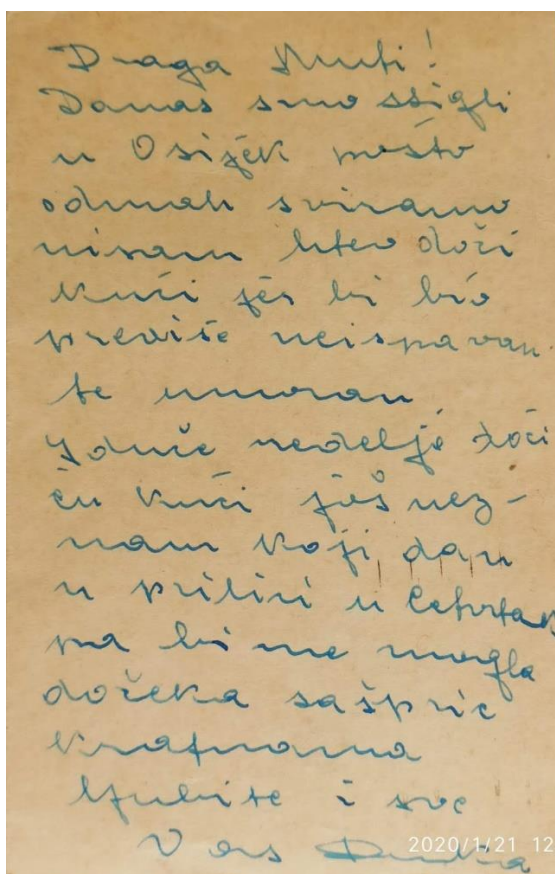 Draga Muti!
Danas smo stigli
u Osijék pošto
odmah sviramo
nisam hteo doći
kući jér bi bio
previše neispavan
te umoran
Iduće nedelje doći
ću kući još nez-
nam koji dan
u prilici u Četvrtak
pa bi me mogla
dočeka sašpric
krafnama
ljubi te i sve
Vas
2020/1/21 12